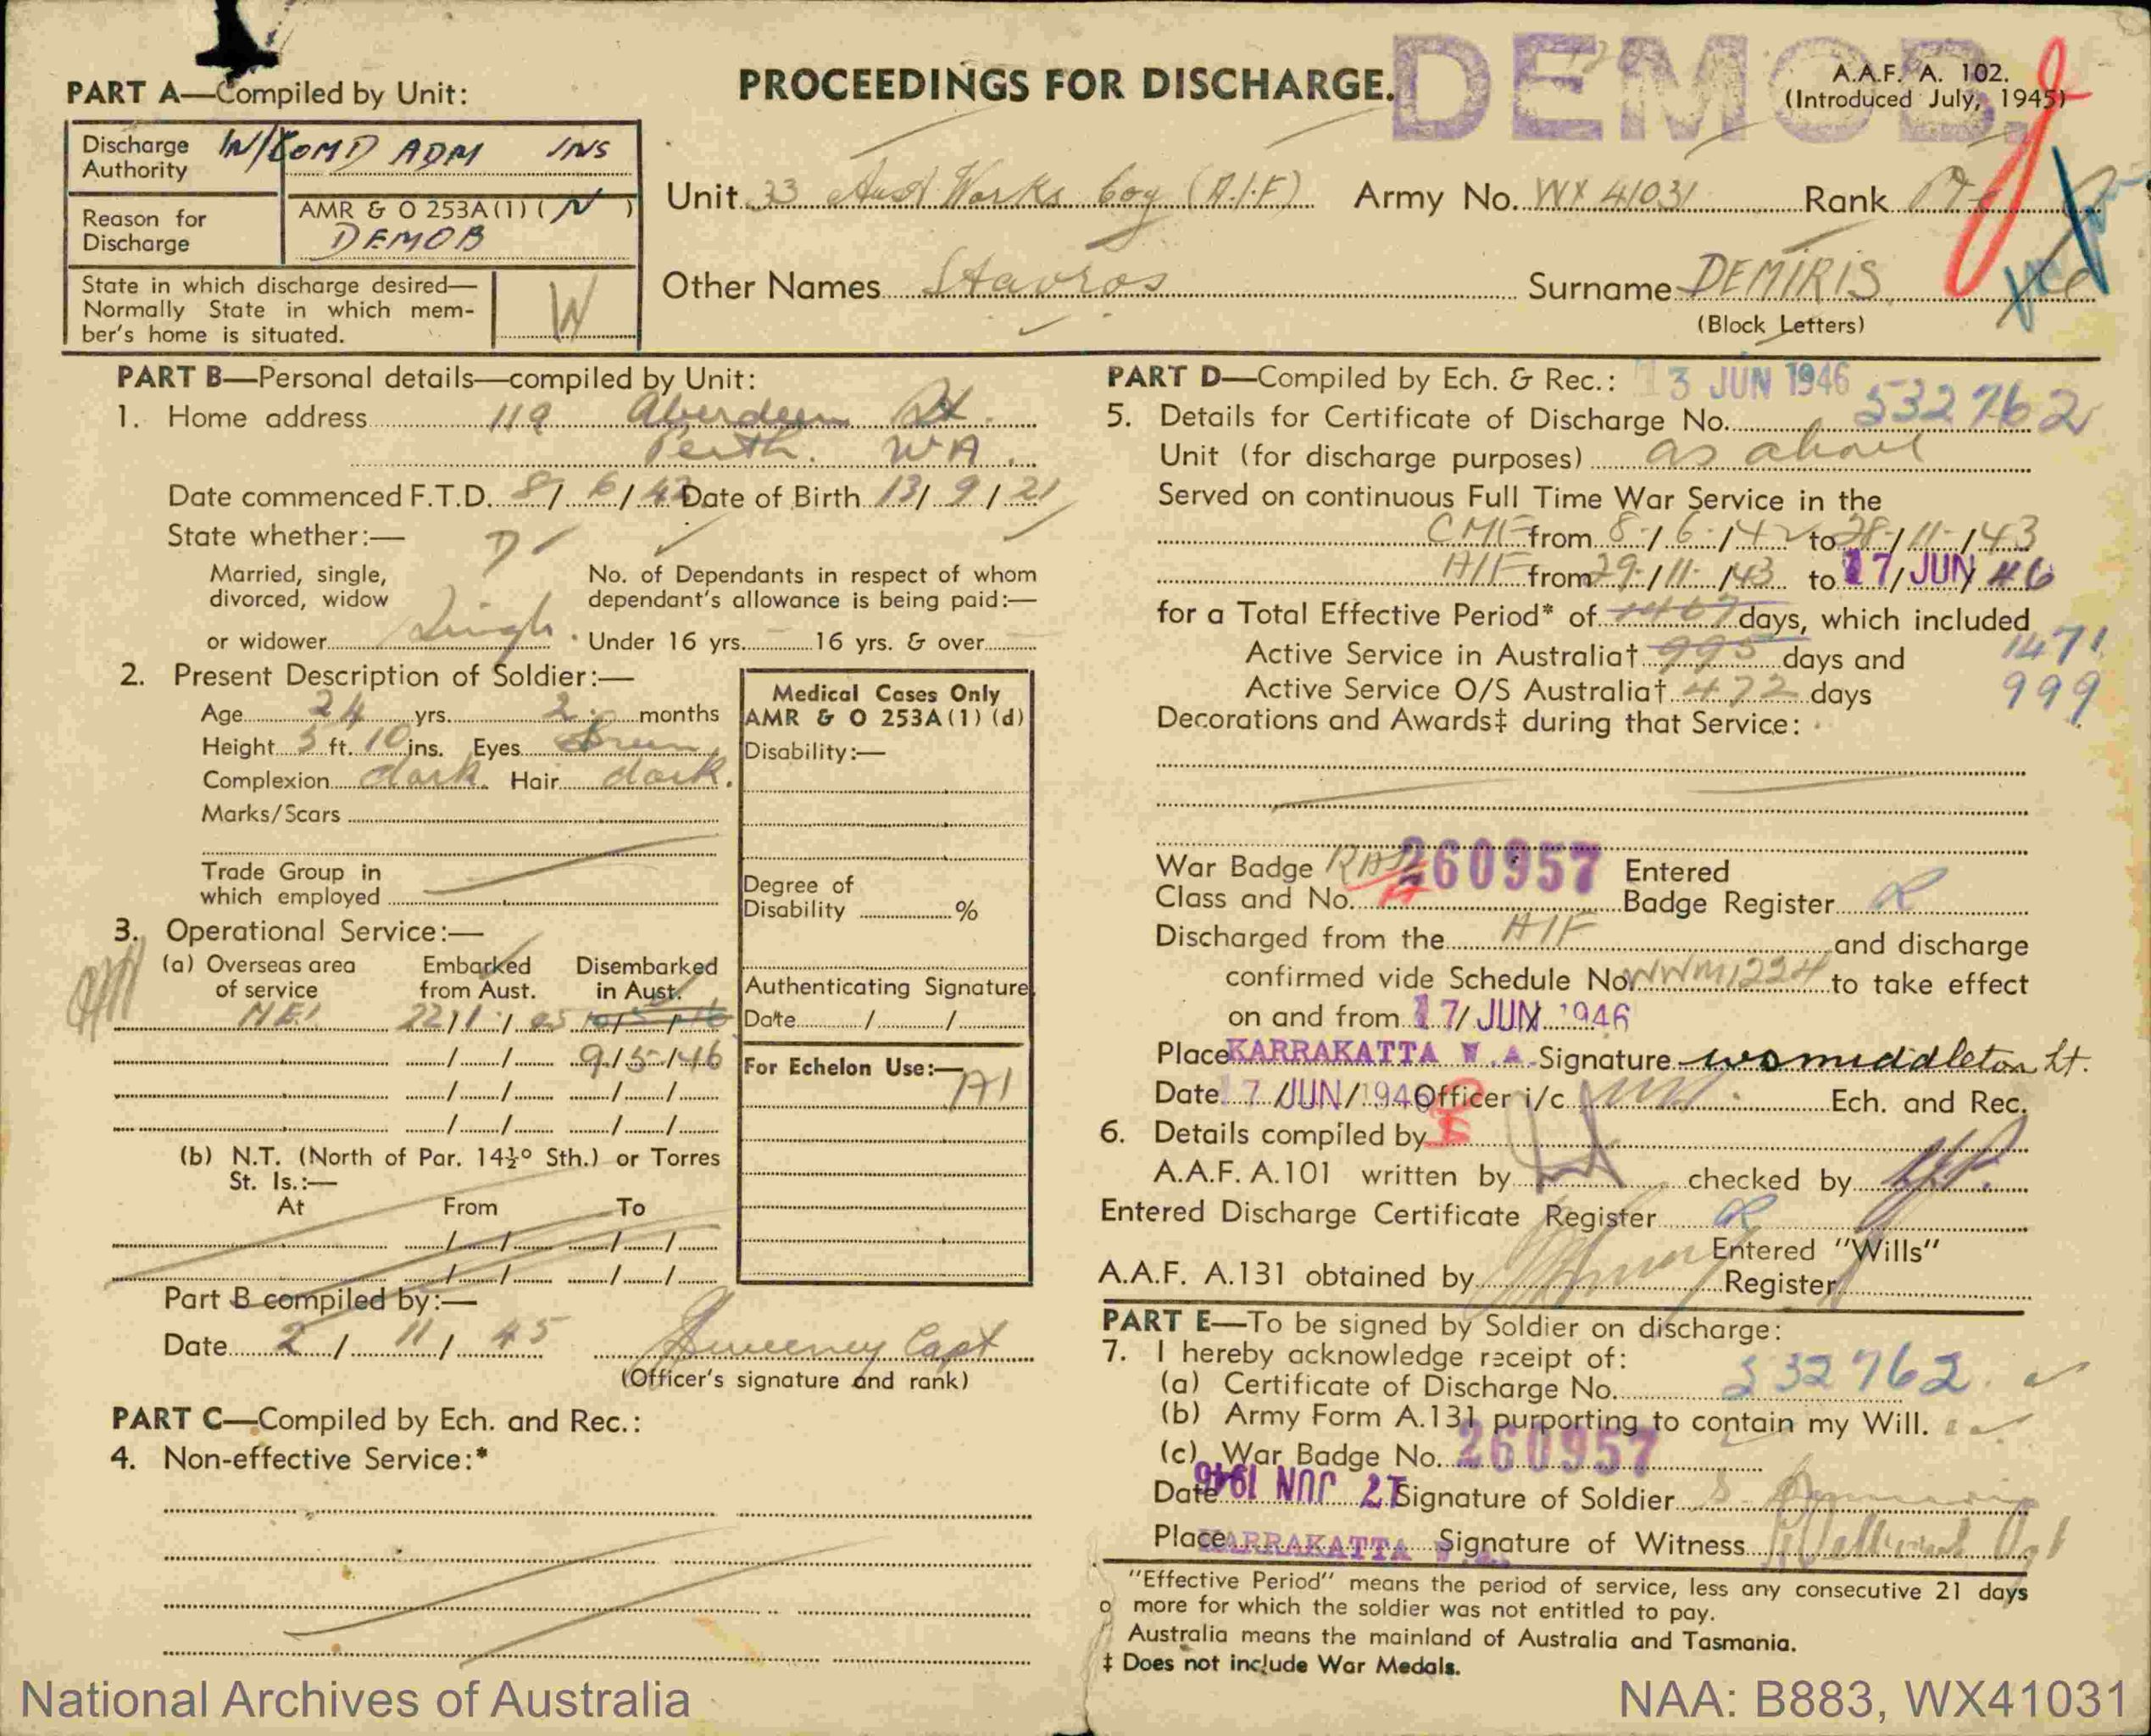 DEMOB.
PROCEEDINGS FOR DISCHARGE.
A.A.F. A. 102.
(Introduced July, 1945)
PART A—Compiled by Unit:
Discharge Authority W/COMD ADM INS
Reason for Discharge AMR & O 253A(1) ( N )
DEMOB
State in which discharge desired—
Normally State in which mem-
ber's home is situated. W
Unit 33 Aust Works Coy (A.I.F) Army No. WX 41031 Rank Pte
Other Names Stavros Surname DEMIRIS
(Block Letters)
PART B—Personal details—compiled by Unit:
1. Home address 119 Aberdeen St.
Perth. WA.
Date commenced F.T.D. 8/ 6/ 42 Date of Birth 13/ 9 / 21
State whether:—
Married, single,
divorced, widow
or widower Single.
No. of Dependants in respect of whom
dependant's allowance is being paid:—
Under 16 yrs. 16 yrs. & over
2. Present Description of Soldier:—
Age 24 yrs. 2 months
Height 5 ft. 10 ins. Eyes Brown
Complexion dark Hair dark.
Marks/Scars
Trade Group in
which employed
Medical Cases Only
AMR & O 253A(1) (d)
Disability:—
Degree of
Disability %
Authenticating Signature
Date / /
For Echelon Use:—
A1
3. Operational Service:—
(a) Overseas area of service Embarked from Aust. Disembarked in Aust.
NEI 22/1/45 10/5/46
/ / 9/5/46
/ / / /
/ / / /
(b) N.T. (North of Par. 14½° Sth.) or Torres
St. Is.:—
At From To
/ / / /
/ / / /
Part B compiled by:—
Date 2 / 11 / 45 Sweeney Capt
(Officer's signature and rank)
PART C—Compiled by Ech. and Rec.:
4. Non-effective Service:*
PART D—Compiled by Ech. & Rec.: 13 JUN 1946
5. Details for Certificate of Discharge No. 532762
Unit (for discharge purposes) as above
Served on continuous Full Time War Service in the
CMF from 8/ 6 /42 to 28/ 11 /43
AIF from 29/ 11 /43 to 17/JUN 46
for a Total Effective Period* of 1467 days, which included
1471
Active Service in Australia† 995 days and
999
Active Service O/S Australia† 472 days
Decorations and Awards‡ during that Service:
War Badge Class and No. RAS 260957 Entered Badge Register R
Discharged from the AIF and discharge
confirmed vide Schedule No. WWM1224 to take effect
on and from 17/JUN 1946
Place KARRAKATTA W.A. Signature womiddleton Lt.
Date 17/JUN/1946 Officer i/c Ech. and Rec.
6. Details compiled by
A.A.F. A.101 written by checked by
Entered Discharge Certificate Register R
A.A.F. A.131 obtained by Entered "Wills" Register
PART E—To be signed by Soldier on discharge:
7. I hereby acknowledge receipt of:
(a) Certificate of Discharge No. 532762.
(b) Army Form A.131 purporting to contain my Will.
(c) War Badge No. 260957
Date 17 JUN 1946 Signature of Soldier
Place KARRAKATTA W.A. Signature of Witness
"Effective Period" means the period of service, less any consecutive 21 days
o more for which the soldier was not entitled to pay.
Australia means the mainland of Australia and Tasmania.
‡ Does not include War Medals.
National Archives of Australia
NAA: B883, WX41031